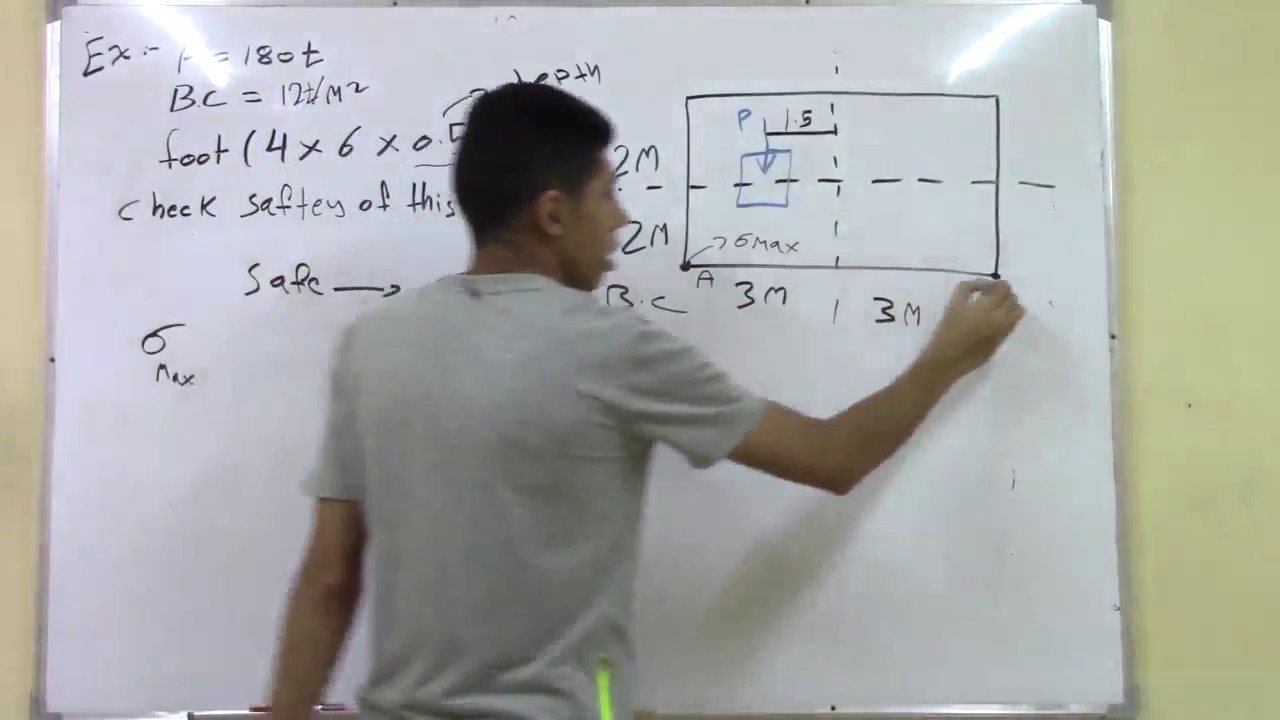 Ex:- = 180t
B.C = 12t/M²
depth
foot (4 x 6 x 0.5
check saftey of this
Safe → B.C
σ Max
P
1.5
2M
2M
σMax
A
3M
3M